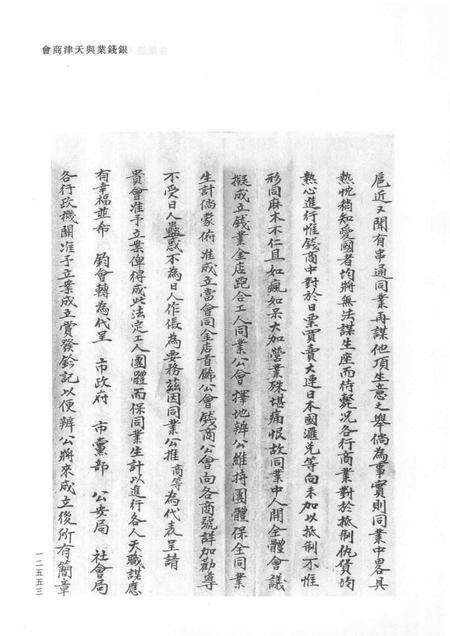 銀錢業與天津商會
扈近又聞有串通同業再謀他項生意之舉倘為事實則同業中畧具
熱忱稍知愛國者均將無法謀生座而待斃況各行商業對於抵制仇貨均
熱心進行惟錢商中對於日票買賣大連日本國滙兑等向未加以抵制不惟
形同麻木不仁且如瘋如呆大加營業殊堪痛恨故同業中人開全體會議
擬成立錢業金店跑合工人同業公會擇地辦公維持團體保全同業
生計倘蒙俯准成立當會同金店首餙公會錢商公會向各商號詳加勸導
不受日人蠱惑不為日人作倀為要務茲因同業公推商等為代表呈請
貴會准予立業俾得成此法定工人團體而保同業生計以進行各人天職謀應
有幸福並希 鈞會轉為代呈 市政府 市黨部 公安局 社會局
各行政機關准予立業成立賞發鈐記以便辦公將來成立後所有簡章
一二五五三